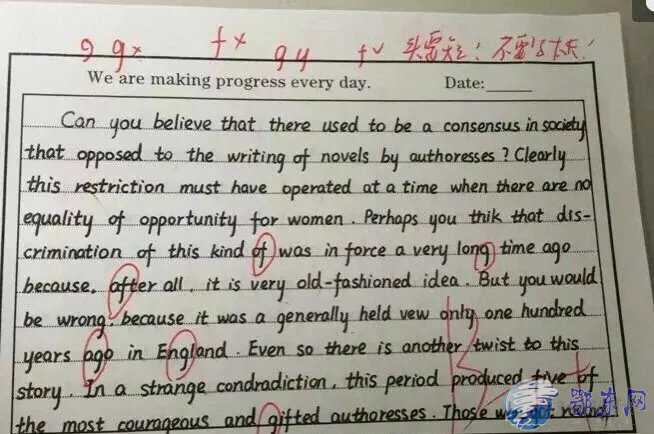 g g× f× g y f✓ 头要短！不要写太长！
We are making progress every day. Date:
Can you believe that there used to be a consensus in society
that opposed to the writing of novels by authoresses? Clearly
this restriction must have operated at a time when there are no
equality of opportunity for women. Perhaps you thik that dis-
crimination of this kind of was in force a very long time ago
because, after all, it is very old-fashioned idea. But you would
be wrong, because it was a generally held vew only one hundred
years ago in England. Even so there is another twist to this
story. In a strange condradiction, this period produced five of
the most courageous and gifted authoresses. Those
鄂东网